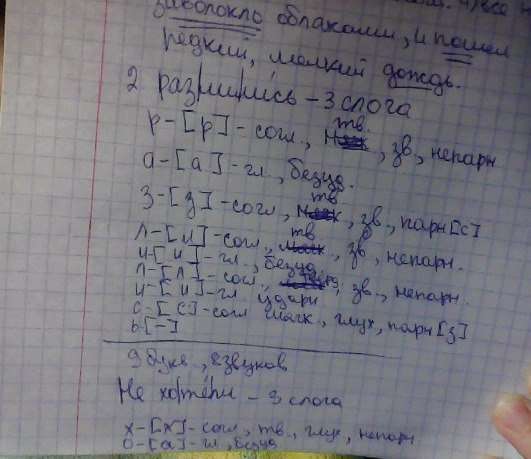 4) все
заволокло облаками, и пошел
редкий, мелкий дождь.
2 разлились - 3 слога
р-[р]-согл., тв., зв., непарн
а-[а]-гл., безуд.
з-[з]-согл., тв, зв., парн [с]
л-[л]-согл., тв, зв, непарн.
и-[и]-гл., безуд.
л-[л]-согл., зв., непарн.
и-[и]-гл ударн
с-[с]-согл мягк., глух, парн [з]
ь-[-]
9 букв., 8 звуков
Не хотели - 3 слога
х-[х]-согл., тв., глух, непарн
о-[а]-гл, безуд